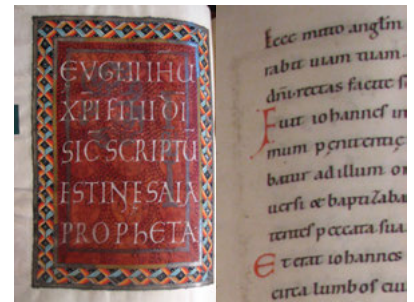 EVGELII IHU
XPI FILII DI
SIC SCRIPTU
EST IN ESAIA
PROPHETA
Ecce mitto anglm
rabit uiam tuam.
dni. rectas facite
Fuit iohannes in
mum penitentie
batur ad illum
uersi et baptizaba
tentes peccata sua.
Et erat iohannes
circa lumbos